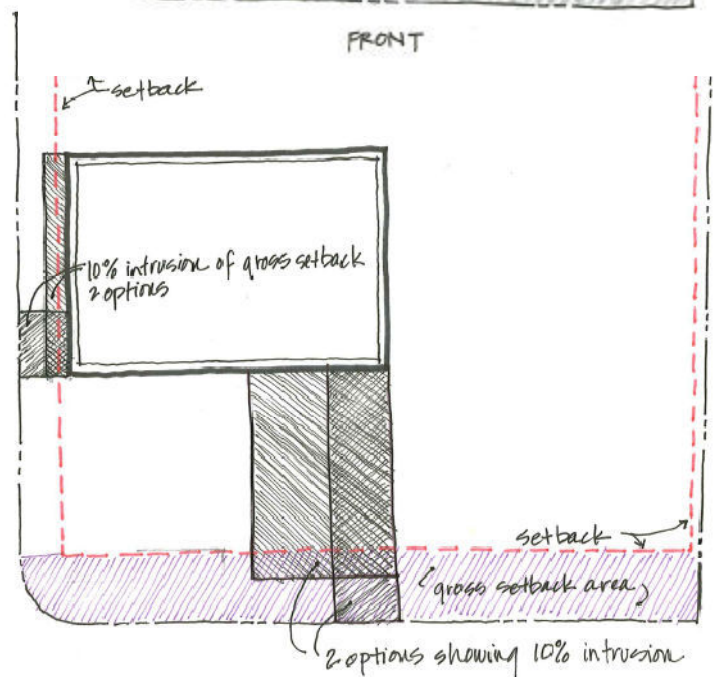 FRONT
setback
10% intrusion of gross setback
2 options
setback
gross setback area
2 options showing 10% intrusion